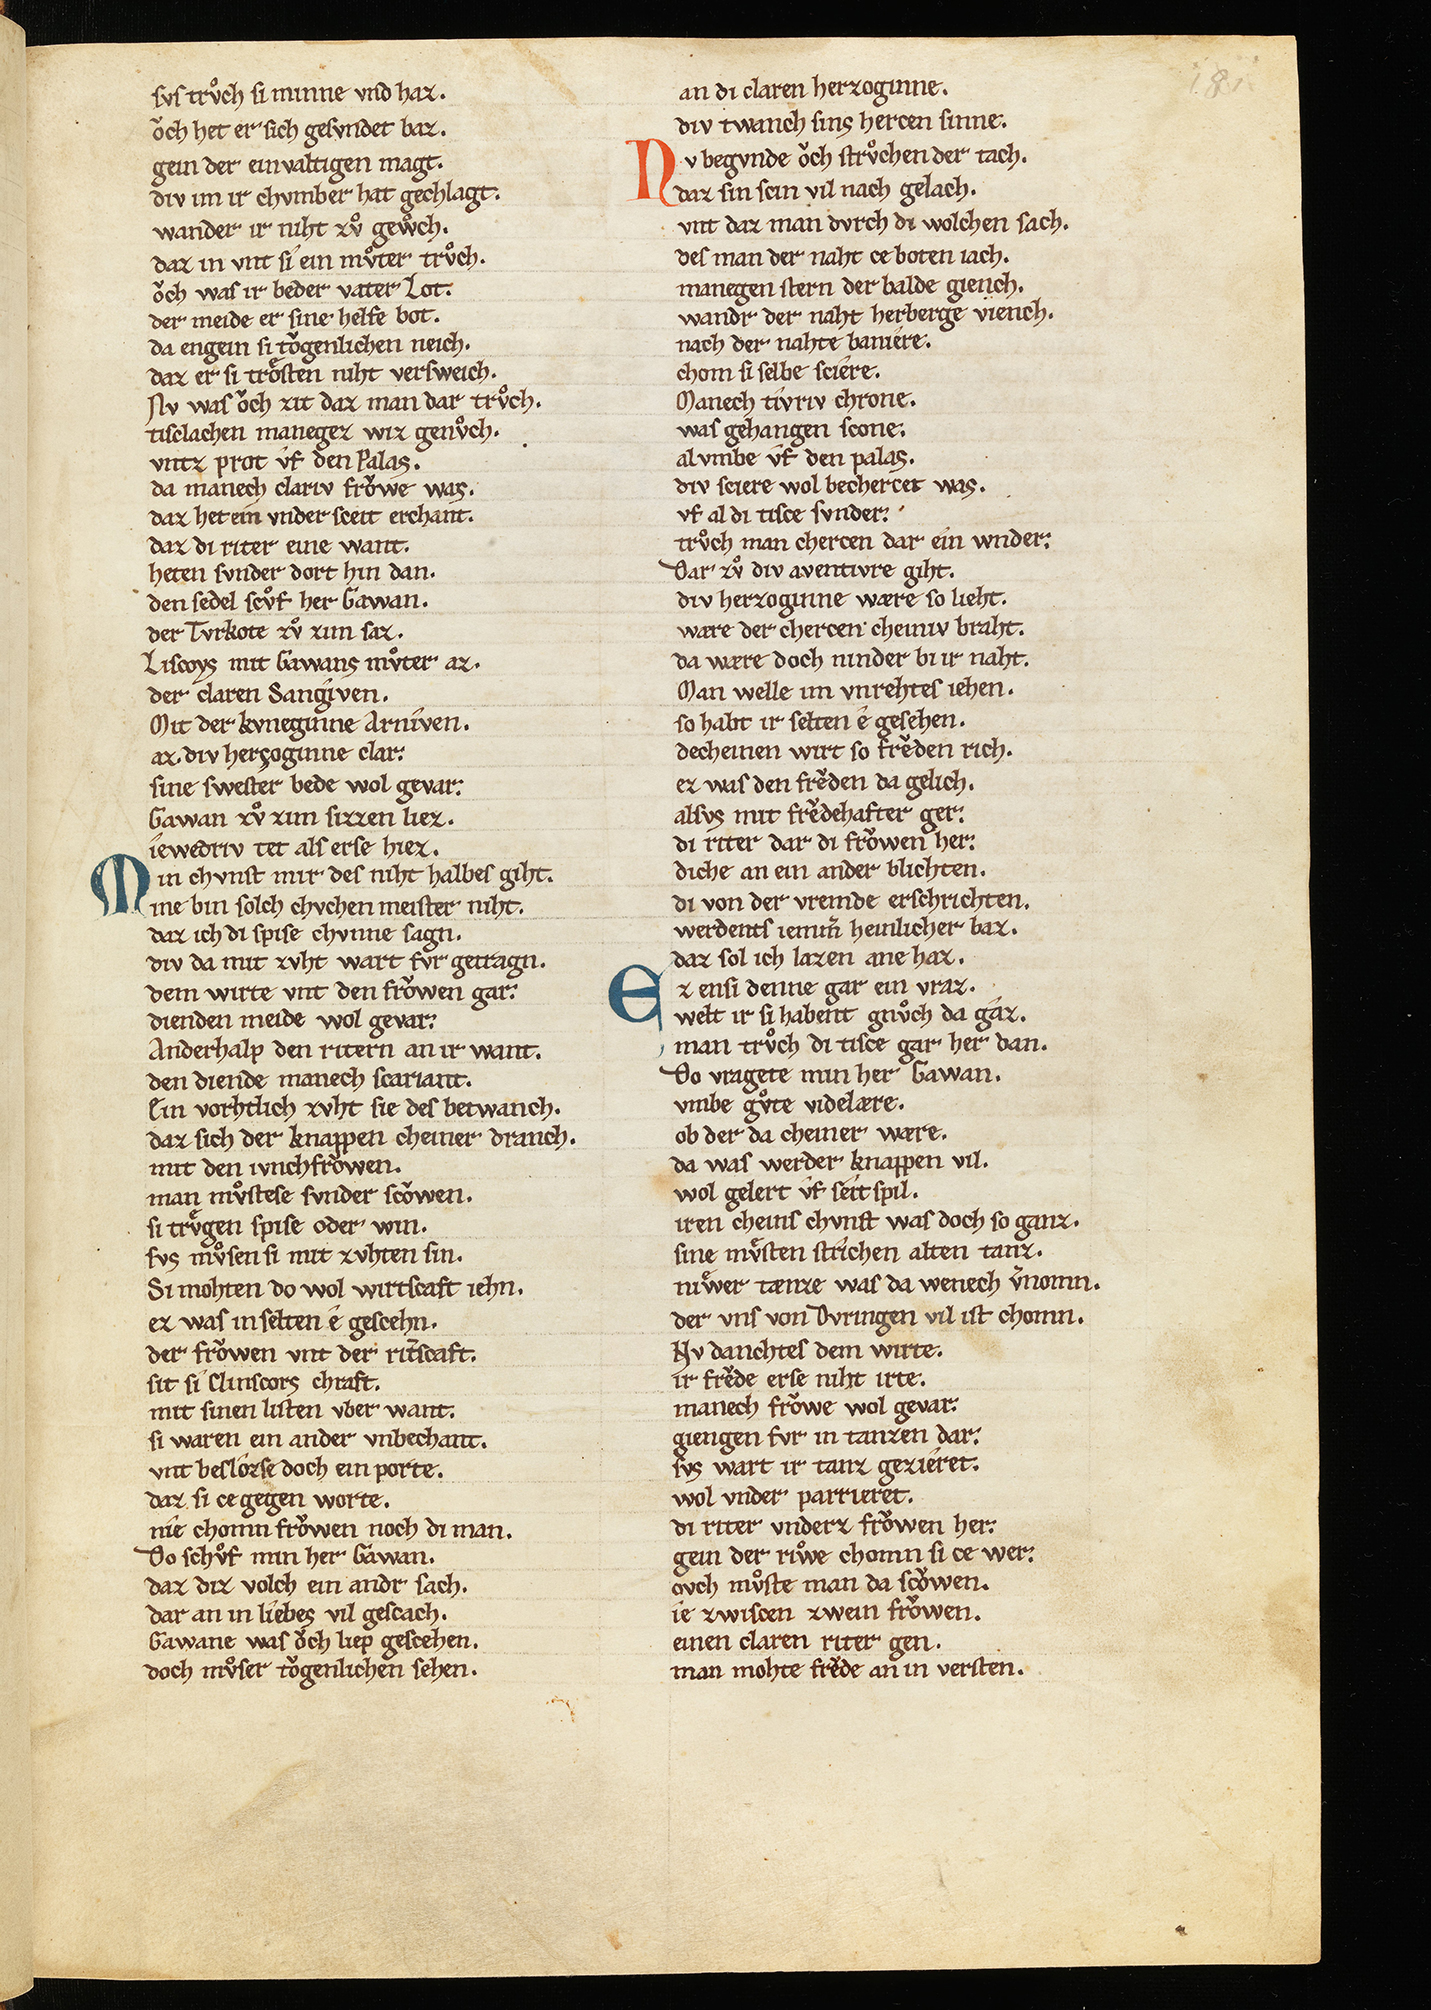 sus trůch si minne vnd haz.
ǒch het er sich gesvndet baz.
gein der einvaltigen magt.
div im ir chvmber hat gechlagt.
wander ir niht zů gewůch.
daz in vnt si ein můter trůch.
ǒch was ir beder vater Lot.
der meide er sine helfe bot.
da engein si tǒgenlichen neich.
daz er si trősten niht versweich.
Nv was ǒch zit daz man dar trůch.
tisclachen maneger wiz genůch.
vntz prot vf den Palas.
da manech clariv frǒwe was.
daz het ein vnder sceit erchant.
daz di riter eine want.
heten svnder dort hin dan.
den sedel scůf her Gawan.
der Tvrkote zů zim saz.
Liscoys mit Gawans můter az.
der claren Sangiven.
Mit der kvneginne Arniven.
az div herzoginne clar.
sine swester bede wol gevar.
Gawan zů zim sizzen liez.
iewedriv tet als erse hiez.
Min chvnst mir des niht halbes giht.
ine bin solch chvchen meister niht.
daz ich di spise chvnne sagn.
div da mit zvht wart fvr getragn.
dem wirte vnt den frǒwen gar.
dienden meide wol gevar.
Anderhalp den ritern an ir want.
den diende manech scariant.
Ein vorhtlich zvht sie des betwanch.
daz sich der knappen cheiner dranch.
mit den ivnchfrǒwen.
man můstese svnder scǒwen.
si trůgen spise oder win.
svs můsen si mit zvhten sin.
Si mohten do wol wirtscaft iehn.
ez was in selten e gescehn.
der frǒwen vnt der rit̄scaft.
sit si Clinscors chraft.
mit sinen listen vber want.
si waren ein ander vnbechant.
vnt beslozse doch ein porte.
daz si ce gegen worte.
nie chomn frǒwen noch di man.
Do schůf min her Gawan.
daz diz volch ein andr sach.
dar an in liebes vil gescach.
Gawane was ǒch liep gescehen.
doch můser tǒgenlichen sehen.
an di claren herzoginne.
div twanch sins hercen sinne.
Nv begvnde ǒch strůchen der tach.
daz sin scin vil nach gelach.
vnt daz man dvrch di wolchen sach.
des man der naht ce boten iach.
manegen stern der balde giench.
wandr der naht herberge viench.
nach der nahte baniere.
chom si selbe sciere.
Manech tivriv chrone.
was gehangen scone.
al vmbe vf den palas.
div sciere wol bechercet was.
vf al di tisce svnder.
trůch man chercen dar ein wnder.
Dar zů div aventivre giht.
div herzoginne wære so lieht.
wære der chercen cheiniv braht.
da wære doch ninder bi ir naht.
Man welle im vnrehtes iehen.
so habt ir selten e gesehen.
decheinen wirt so frěden rich.
ez was den frěden da gelich.
alsvs mit frědehafter ger.
di riter dar di frǒwen her.
diche an ein ander blichten.
di von der vremde erschrichten.
werdents iemm̄ heinlicher baz.
daz sol ich lazen ane haz.
Ez ensi denne gar ein vraz.
welt ir si habent gnůch da gaz.
man trůch di tisce gar her dan.
Do vragete min her Gawan.
vmbe gůte videlære.
ob der da cheiner wære.
da was werder knappen vil.
wol gelert vf seit spil.
iren cheins chvnst was doch so ganz.
sine můsten strichen alten tanz.
niůwer tænze was da wenech v̄nomn.
der vns von Dvringen vil ist chomn.
Nv danchtes dem wirte.
ir frěde erse niht irte.
manech frǒwe wol gevar.
giengen fvr in tanzen dar.
svs wart ir tanz gezieret.
wol vnder parrieret.
di riter vnderz frǒwen her.
gein der riůwe chomn si ce wer.
ovch můste man da scǒwen.
ie zwiscen zwein frǒwen.
einen claren riter gen.
man mohte frěde an in versten.